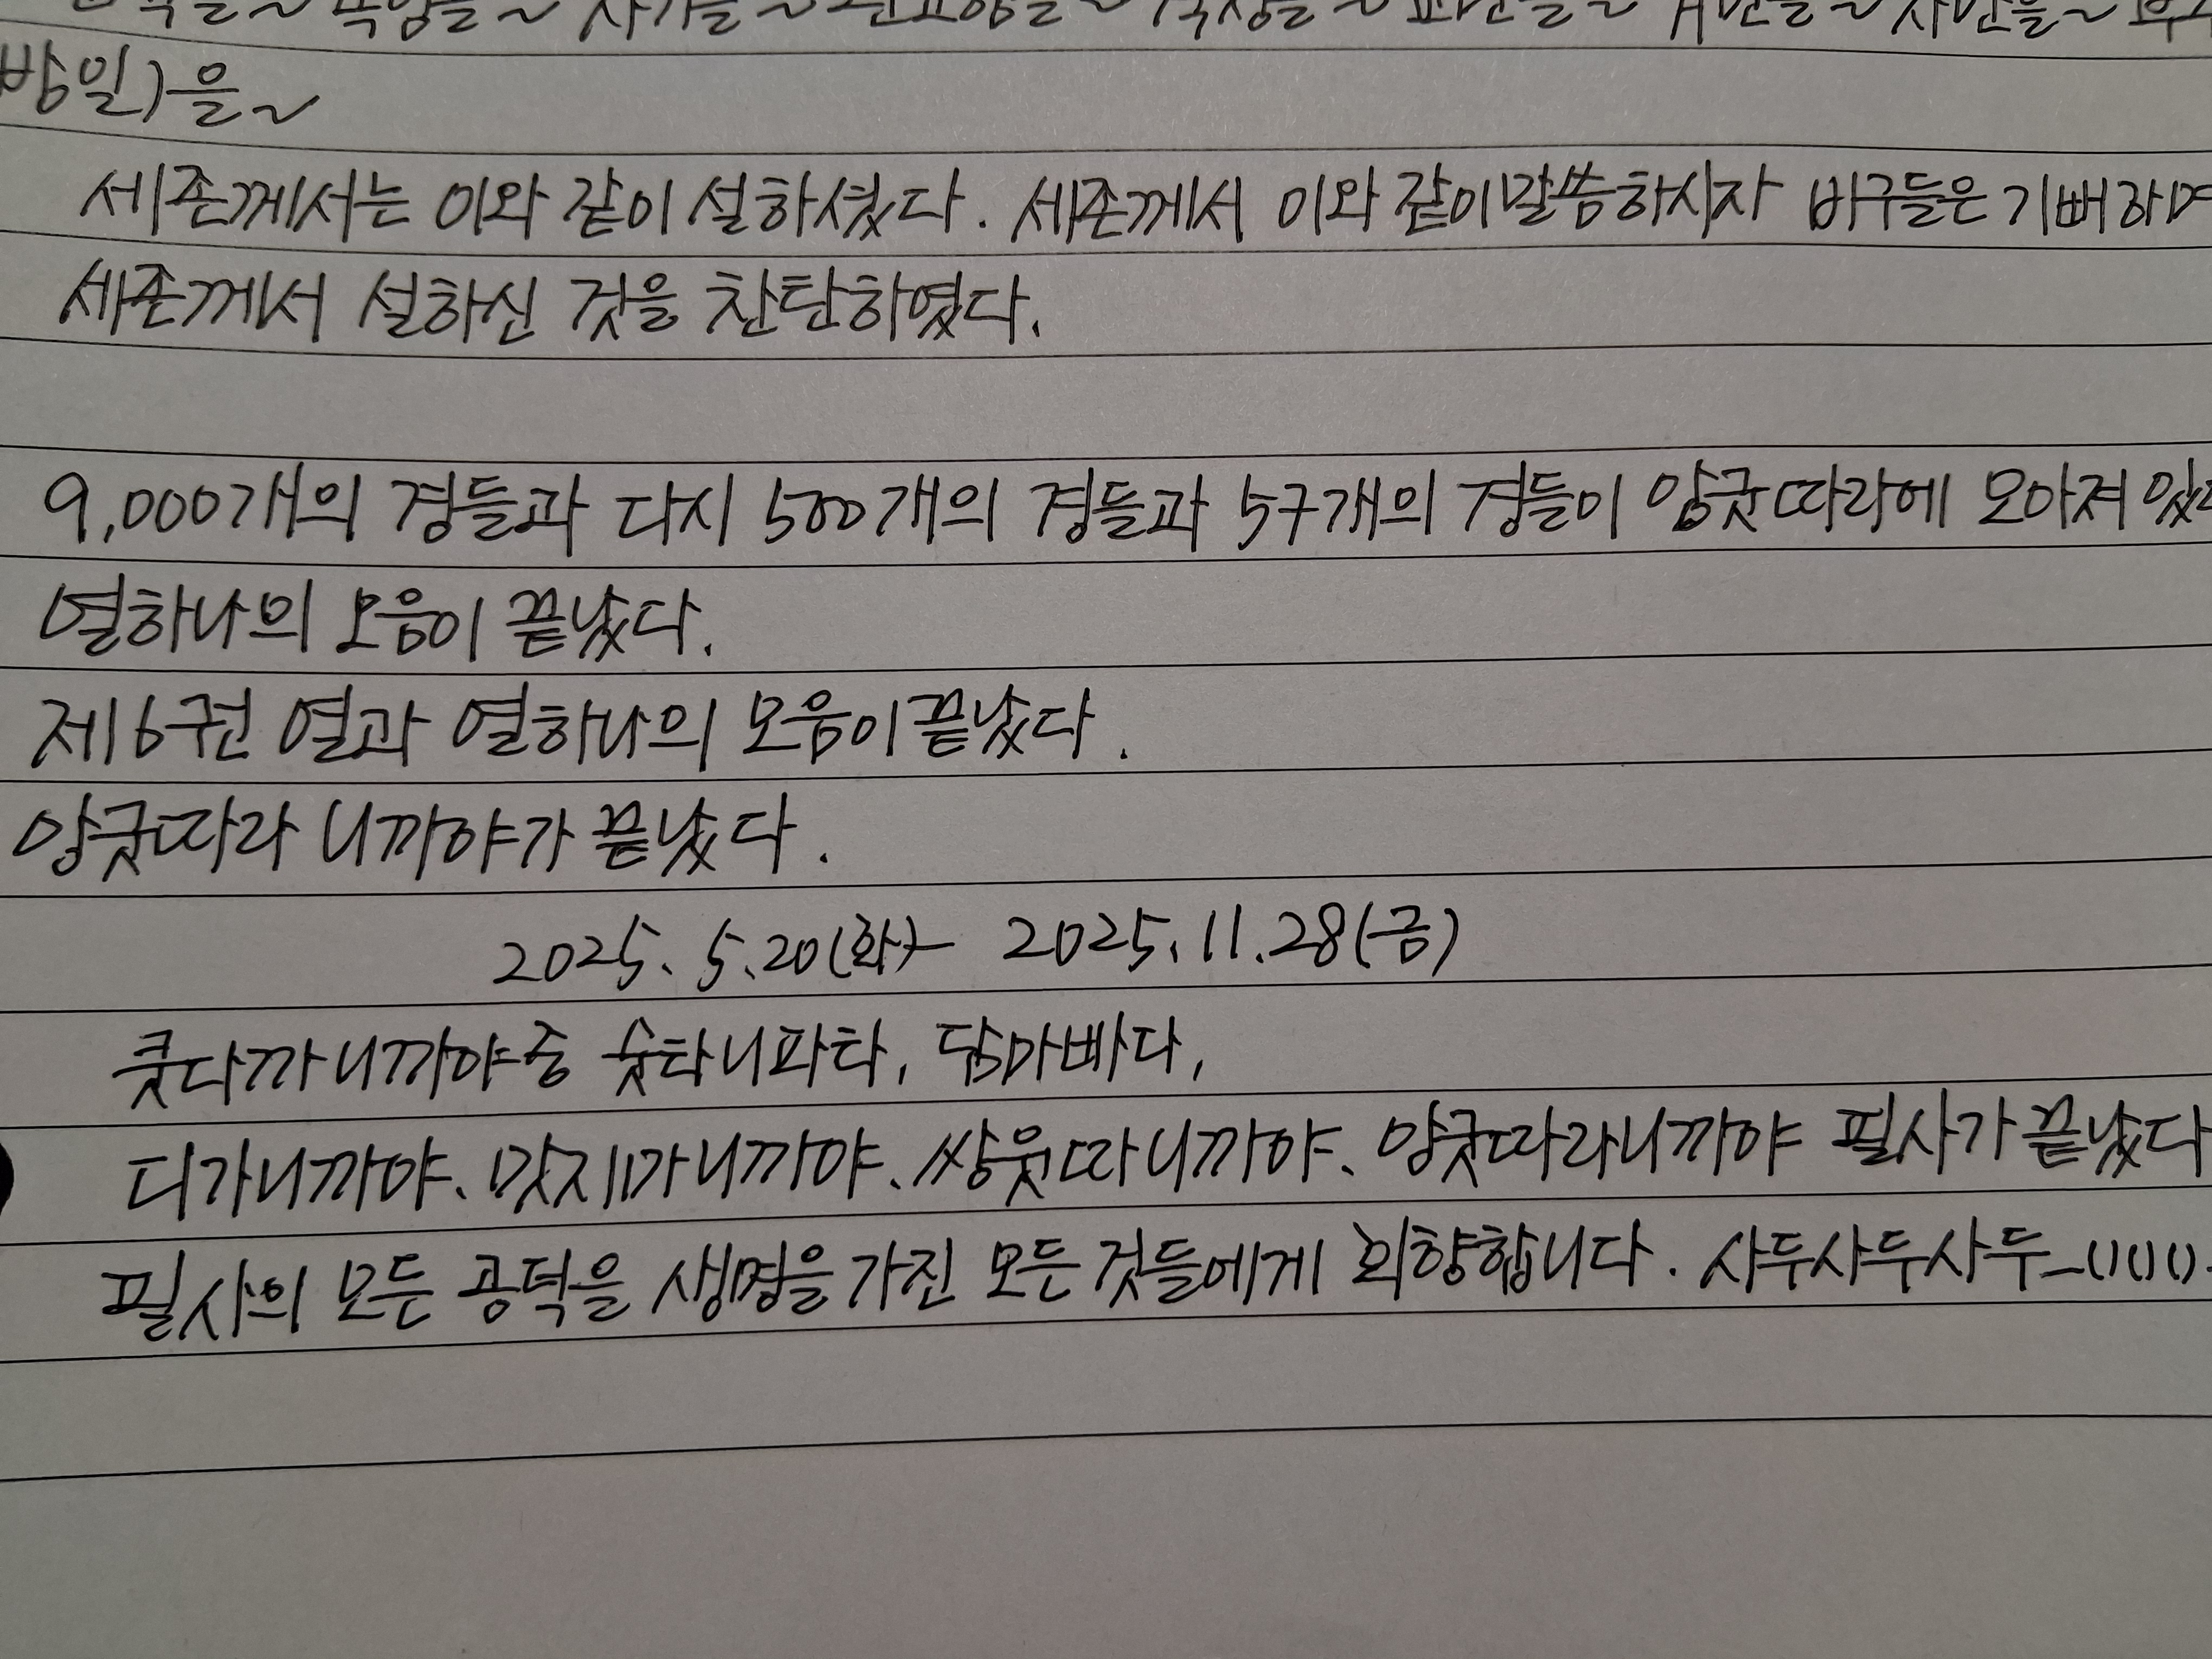 방일)을~
세존께서는 이와 같이 설하셨다. 세존께서 이와 같이 말씀하시자 비구들은 기뻐하며
세존께서 설하신 것을 찬탄하였다.
9,000개의 경들과 다시 500개의 경들과 57개의 경들이 앙굿따라에 모아져 있다
열하나의 모음이 끝났다.
제6권 열과 열하나의 모음이 끝났다.
앙굿따라 니까야가 끝났다.
2025. 5.20(화)- 2025.11.28(금)
쿳다까니까야중 숫타니파타, 담마빠다,
디가니까야. 맛지마니까야. 쌍윳따니까야. 앙굿따라니까야 필사가 끝났다
필사의 모든 공덕을 생명을 가진 모든 것들에게 회향합니다. 사두사두사두_()()().